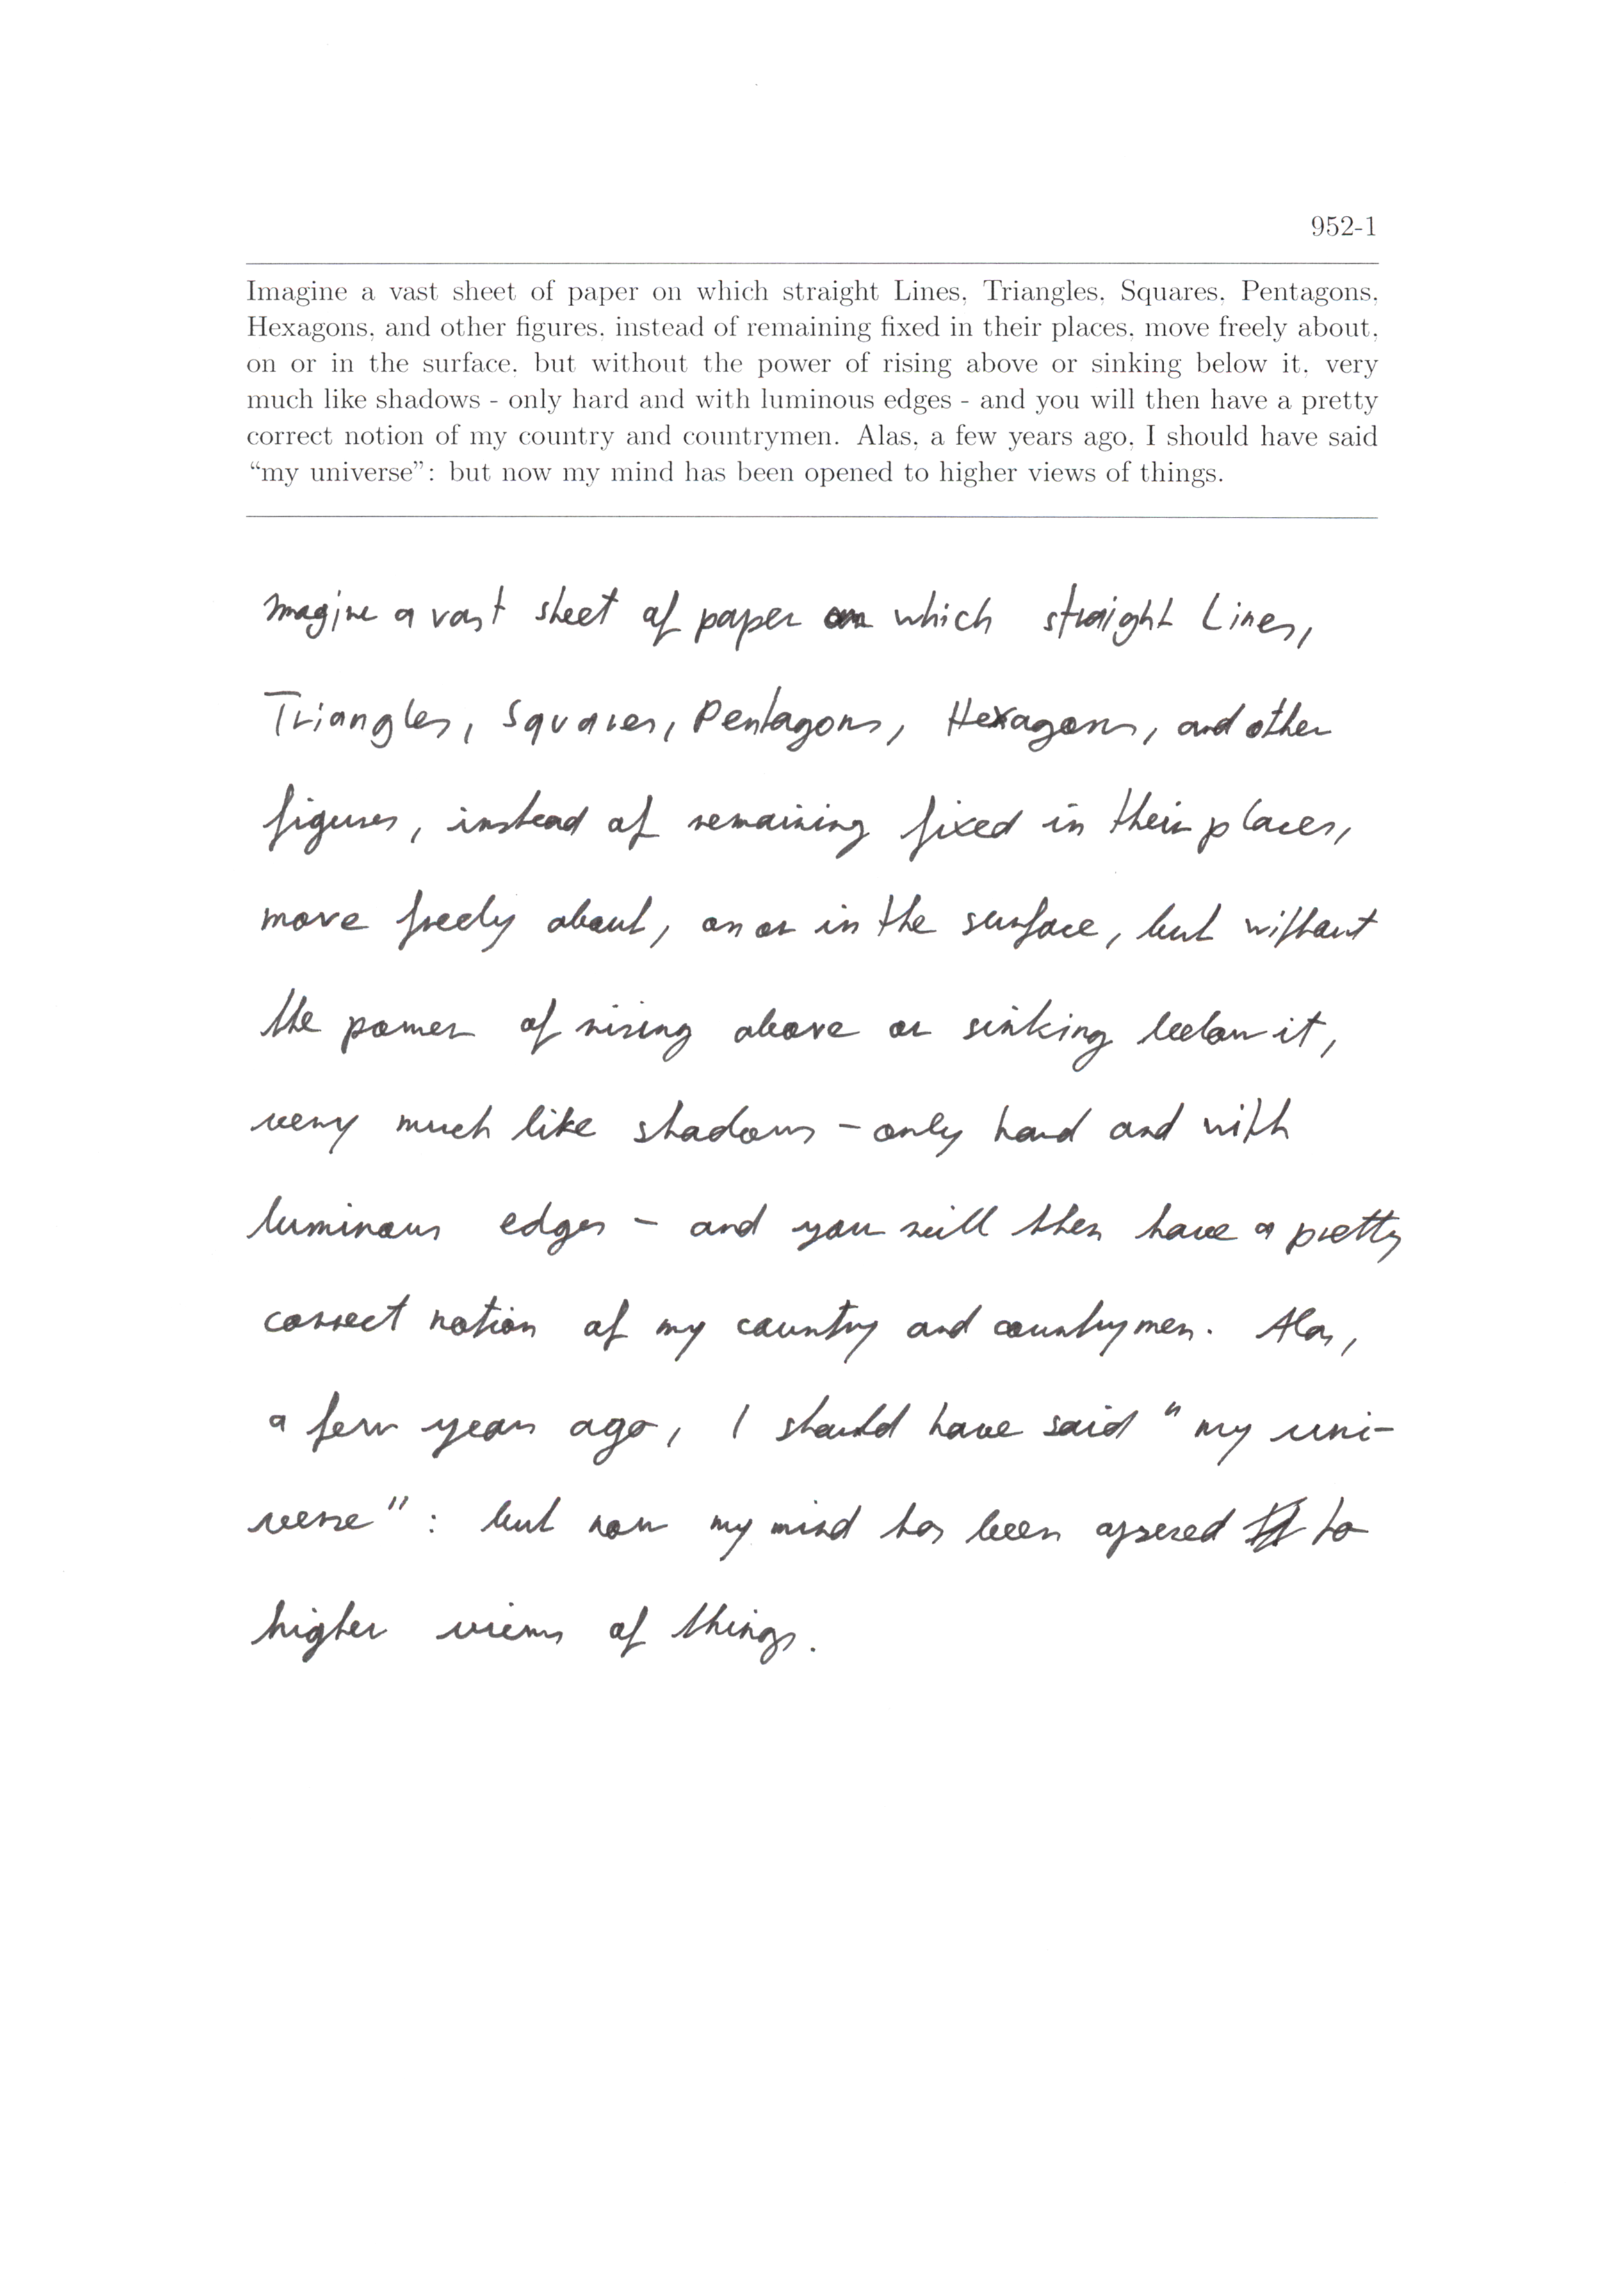 952-1
Imagine a vast sheet of paper on which straight Lines, Triangles, Squares, Pentagons,
Hexagons, and other figures, instead of remaining fixed in their places, move freely about,
on or in the surface, but without the power of rising above or sinking below it, very
much like shadows - only hard and with luminous edges - and you will then have a pretty
correct notion of my country and countrymen. Alas, a few years ago, I should have said
“my universe”: but now my mind has been opened to higher views of things.
Imagine a vast sheet of paper on which straight Lines,
Triangles, Squares, Pentagons, Hexagons, and other
figures, instead of remaining fixed in their places,
move freely about, on or in the surface, but without
the power of rising above or sinking below it,
very much like shadows - only hard and with
luminous edges - and you will then have a pretty
correct notion of my country and countrymen. Alas,
a few years ago, I should have said "my uni-
verse": but now my mind has been opened to
higher views of things.